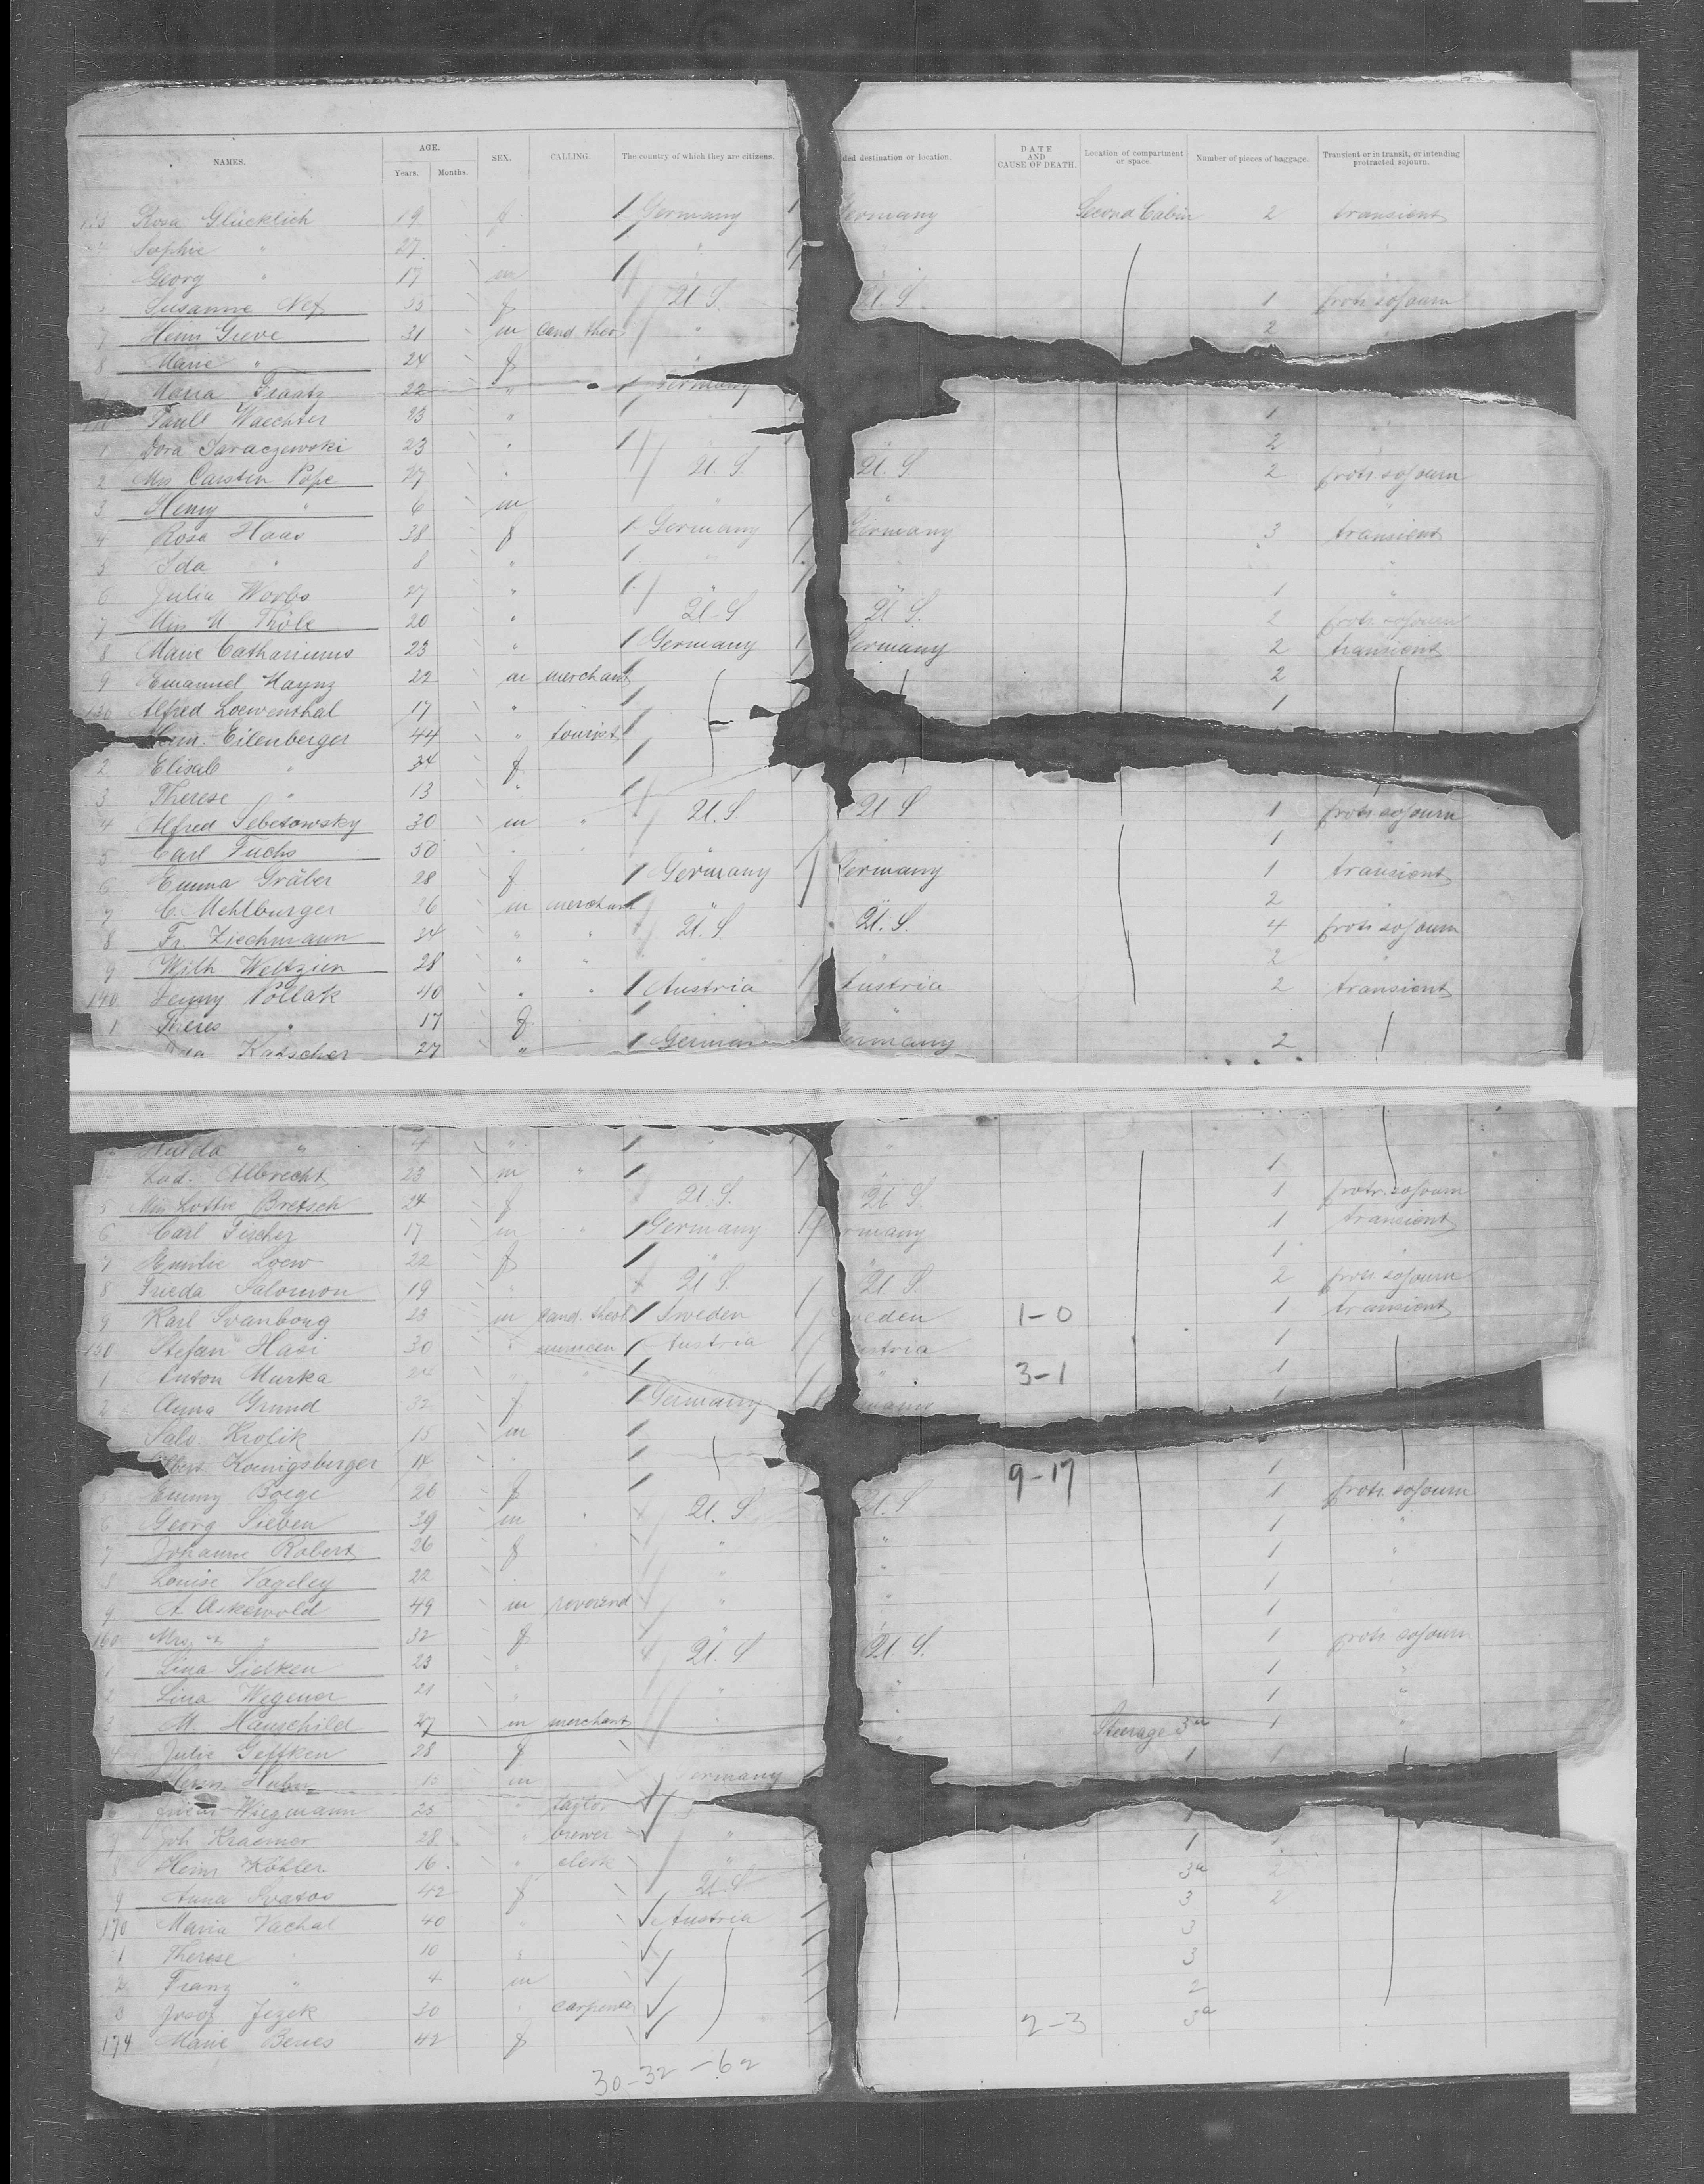 NAMES. AGE. SEX. CALLING. The country of which they are citizens. ded destination or location. DATE AND CAUSE OF DEATH. Location of compartment or space. Number of pieces of baggage. Transient or in transit, or intending protracted sojourn.
Years. Months.
Rosa Glücklich 19 f Germany ermany Second Cabin 2 transient
Sophie " 27 "
Georg " 17 m
Susanne Nef 33 f U. S. U. S. 1 protr. sojourn
7 Henri Greve 31 m cand. theo " 2
8 Marie " 24 f "
Maria Fraatz 22 " Germany
Paule Waechter 23 " 1
1 Dora Saraczewski 23 " 2
2 Mrs Carsten Pope 27 " U. S. U. S 2 protr. sojourn
3 Henry " 6 m " "
4 Rosa Haas 38 f Germany Germany 3 transient
5 Ida " 8 "
6 Julia Worbs 27 " " " 1 "
7 Mrs M Thöle 20 " U. S U. S. 2 protr. sojourn
8 Marie Catharinus 23 " Germany ermany 2 transient
9 Emanuel Maynz 22 m merchant 2
130 Alfred Loewenthal 17 " 1
Herm. Eilenberger 44 " tourist
2 Elisab " 34 f
3 Therese " 13 "
4 Alfred Sebetowsky 30 m " U. S. U S 1 protr. sojourn
5 Carl Fuchs 50 " " " 1 "
6 Emma Gräber 28 f Germany ermany 1 transient
7 C. Mehlburger 36 m merchant " " 2 "
8 Fr. Ziechmann 34 " " U. S. U. S. 4 protr sojourn
9 Wilh Weltzien 28 " " " " 2 "
140 Jenny Pollak 40 " " Austria Austria 2 transient
1 Theres " 17 f "
Katscher 27 " German ermany 2
Hulda " 4 " "
4 Lud. Albrecht 23 m " " 1
5 Mrs Lottie Bretsch 24 f U. S. U. S 1 protr. sojourn
6 Carl Fischer 17 m " Germany rmany 1 transient
7 Emilie Loew 22 f " " 1 "
8 Frieda Salomon 19 " U S. U S. 2 protr sojourn
9 Karl Svanboug 23 m cand. theol Sweden weden 1-0 1 transient
150 Stefan Hasi 30 " musician Austria stria 1
1 Anton Murka 24 " " " 3-1 1
2 Anna Grund 32 f Germany 1
Salo Krolik 15 m
Albert Koenigsberger 14 " 1
Emmy Boege 26 f 9-17 1 protr. sojourn
6 Georg Sieben 39 m " U. S U. S 1 "
7 Johanne Robert 26 f " " 1 "
8 Louise Vageley 22 " " " 1
9 A Askewold 49 m reverend " " 1
160 Mrs " " 32 f " " 1 protr sojourn
1 Lina Sielken 23 " U. S U S. 1 "
2 Lina Wegener 21 " " " 1 "
3 M. Hauschild 27 m merchant " " Steerage 3a 1 "
4 Julie Geffken 28 f " 1 1
Herm. Hahn 15 m ermany
6 Wiegmann 25 " taylor 1
7 Joh Kraemer 28 " brewer " 1
8 Heinr Köhler 16 " clerk " 3a 2
9 Anna Svatos 42 f U. S 3 2
170 Maria Vachal 40 " Austria 3
1 Therese " 10 " 3
2 Franz " 4 m 2
3 Josef Jezek 30 " carpenter 3a
174 Marie Benes 42 f 2-3
30-32-62